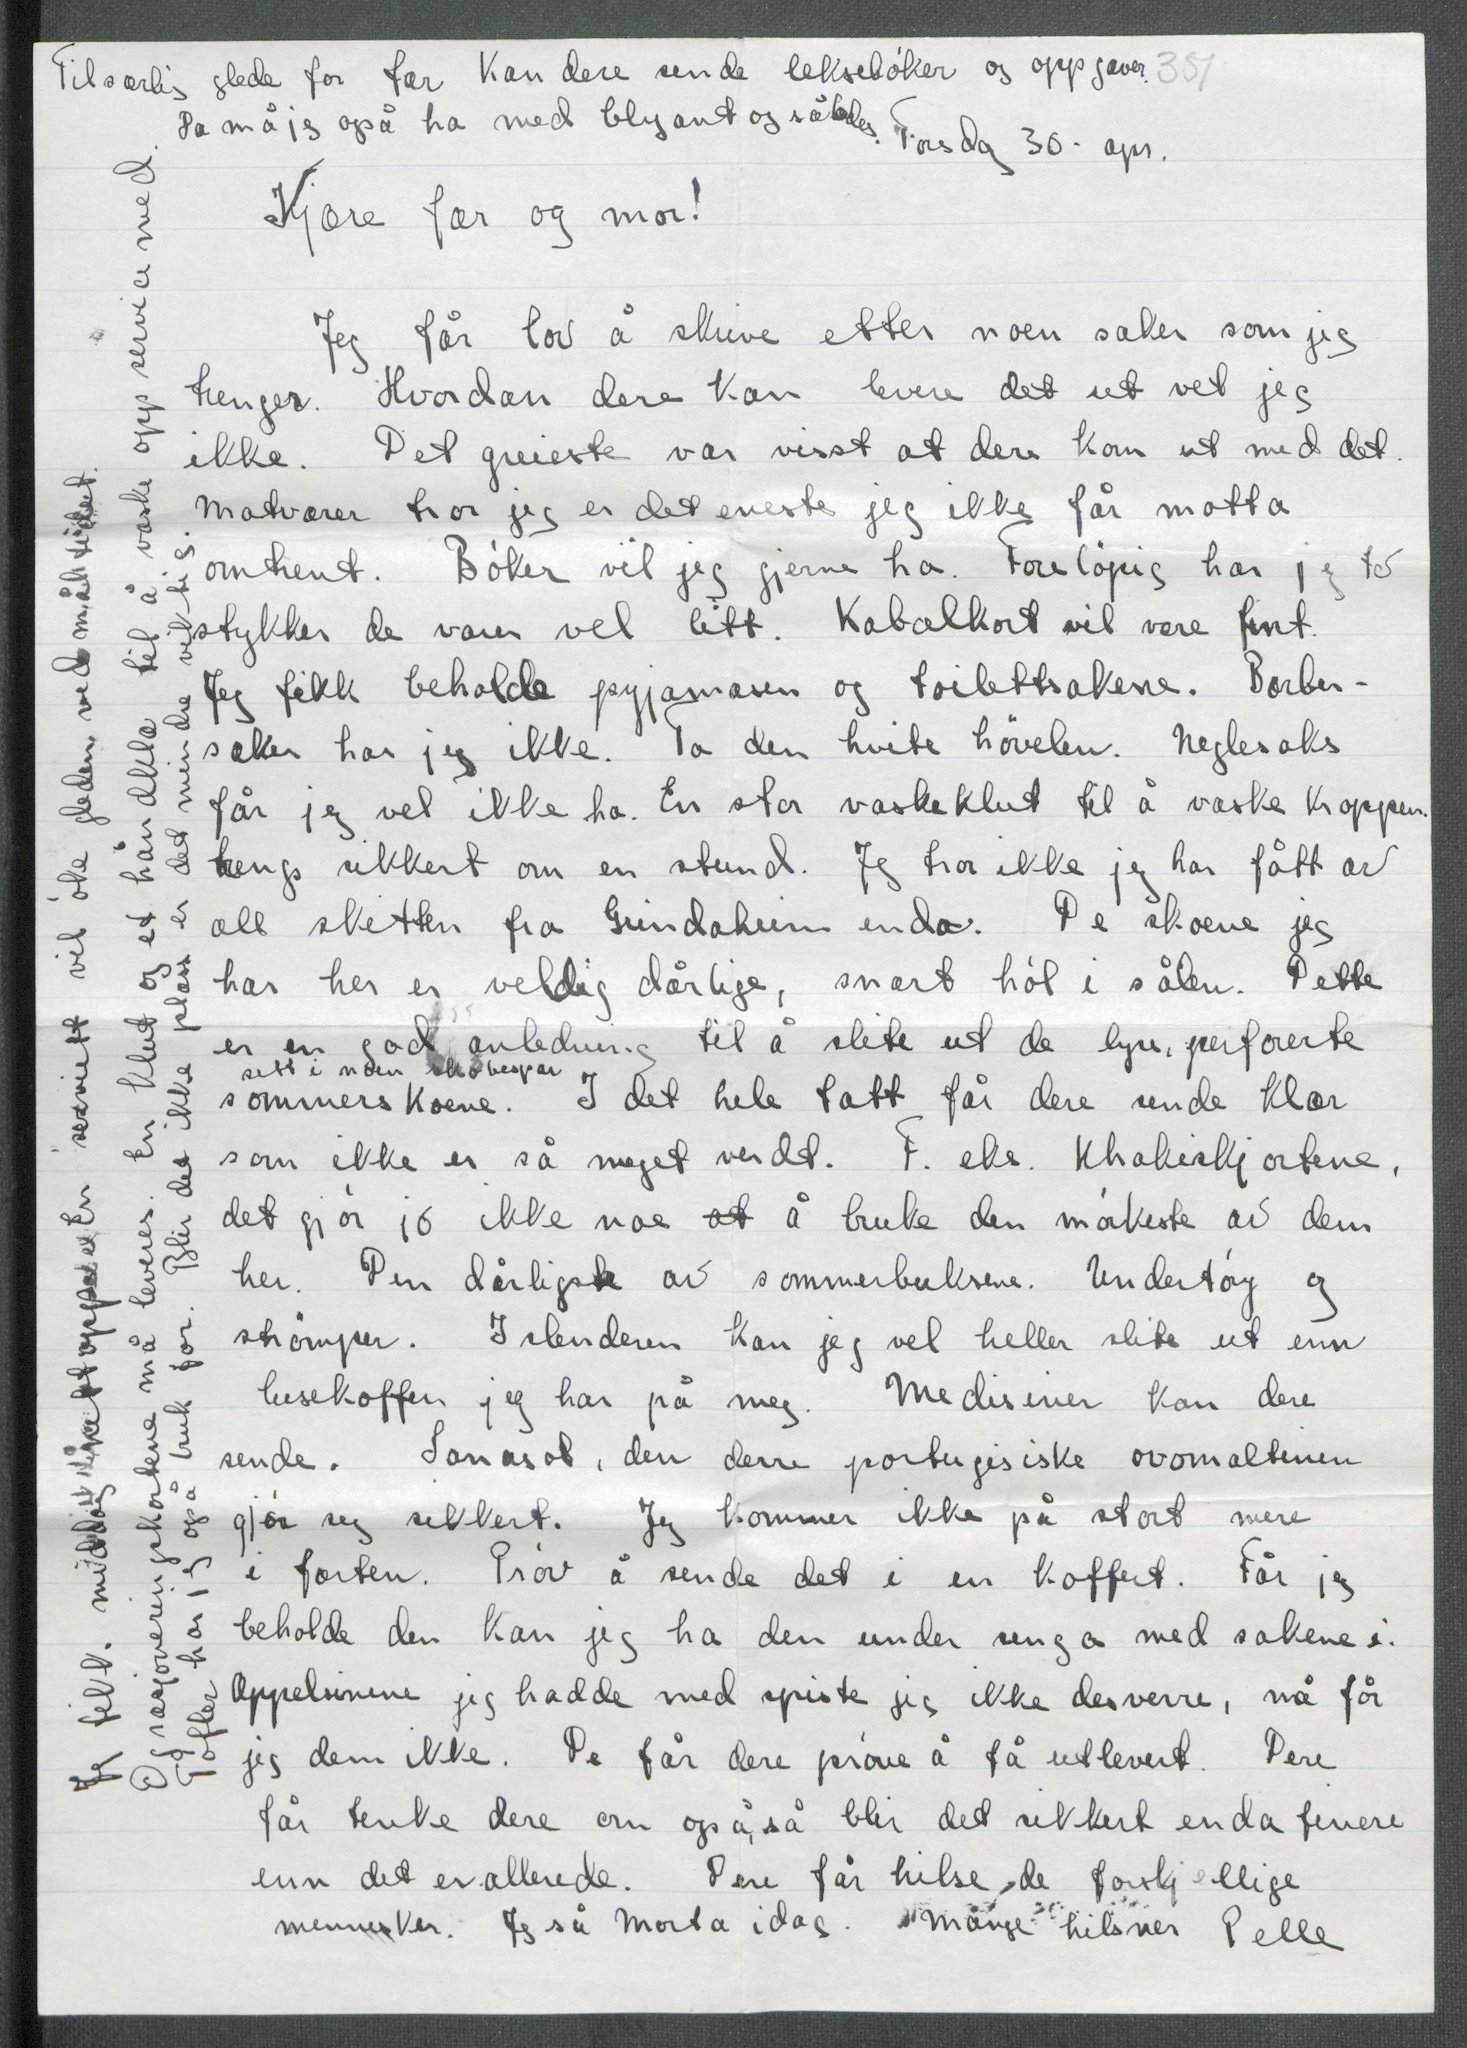 Til særlig glede for far kan dere sende leksebøker og oppgaver. 351
Da må jeg også ha med blyant og således.
Torsdag 30. apr.
Kjære far og mor!
Jeg får lov å skrive etter noen saker som jeg
trenger. Hvordan dere kan levere det ut vet jeg
ikke. Det greieste var visst at dere kom ut med det.
Matvarer tror jeg er det eneste jeg ikke får motta
omtrent. Bøker vil jeg gjerne ha. Foreløpig har jeg to
stykker de varer vel litt. Kabalkort vil være fint.
Jeg fikk beholde pyjamasen og toilettsakene. Barber-
saker har jeg ikke. Ta den hvite høvelen. Neglesaks
får jeg vel ikke ha. En stor vaskeklut til å vaske kroppen.
trengs sikkert om en stund. Jeg tror ikke jeg har fått av
all skitten fra Grindaheim enda. De skoene jeg
har her er veldig dårlige, snart hól i sålen. Dette
er en god anledning til å slite ut de lyse, perforerte
sett i noen skobespar
sommerskoene. I det hele tatt får dere sende klær
som ikke er så meget verdt. F. eks. Khakiskjortene,
det gjør jo ikke noe at å bruke den mørkeste av dem
her. Den dårligste av sommerbuksene. Undertøy og
strømper. Islenderen kan jeg vel heller slite ut enn
lusekoffen jeg har på meg. Medisiner kan dere
sende. Sanasol, den derre portugisiske ovomaltinen
gjør seg sikkert. Jeg kommer ikke på stort mere
i farten. Prøv å sende det i en koffert. Får jeg
beholde den kan jeg ha den under senga med sakene i.
Appelsinene jeg hadde med spiste jeg ikke desverre, nå får
jeg dem ikke. De får dere prøve å få utlevert. Dere
får tenke dere om også, så blir det sikkert enda finere
enn det er allerede. Dere får hilse de forskjellige
mennesker. Jeg så Marta idag. Mange hilsner Pelle
Jeg fikk middag En serviett vil øke gleden ved måltidet.
Og rasjoneringskortene må leveres. En klut og et håndkle til å vaske opp service med.
Tøfler har jeg også bruk for. Blir det ikke plass er det mindre viktig.